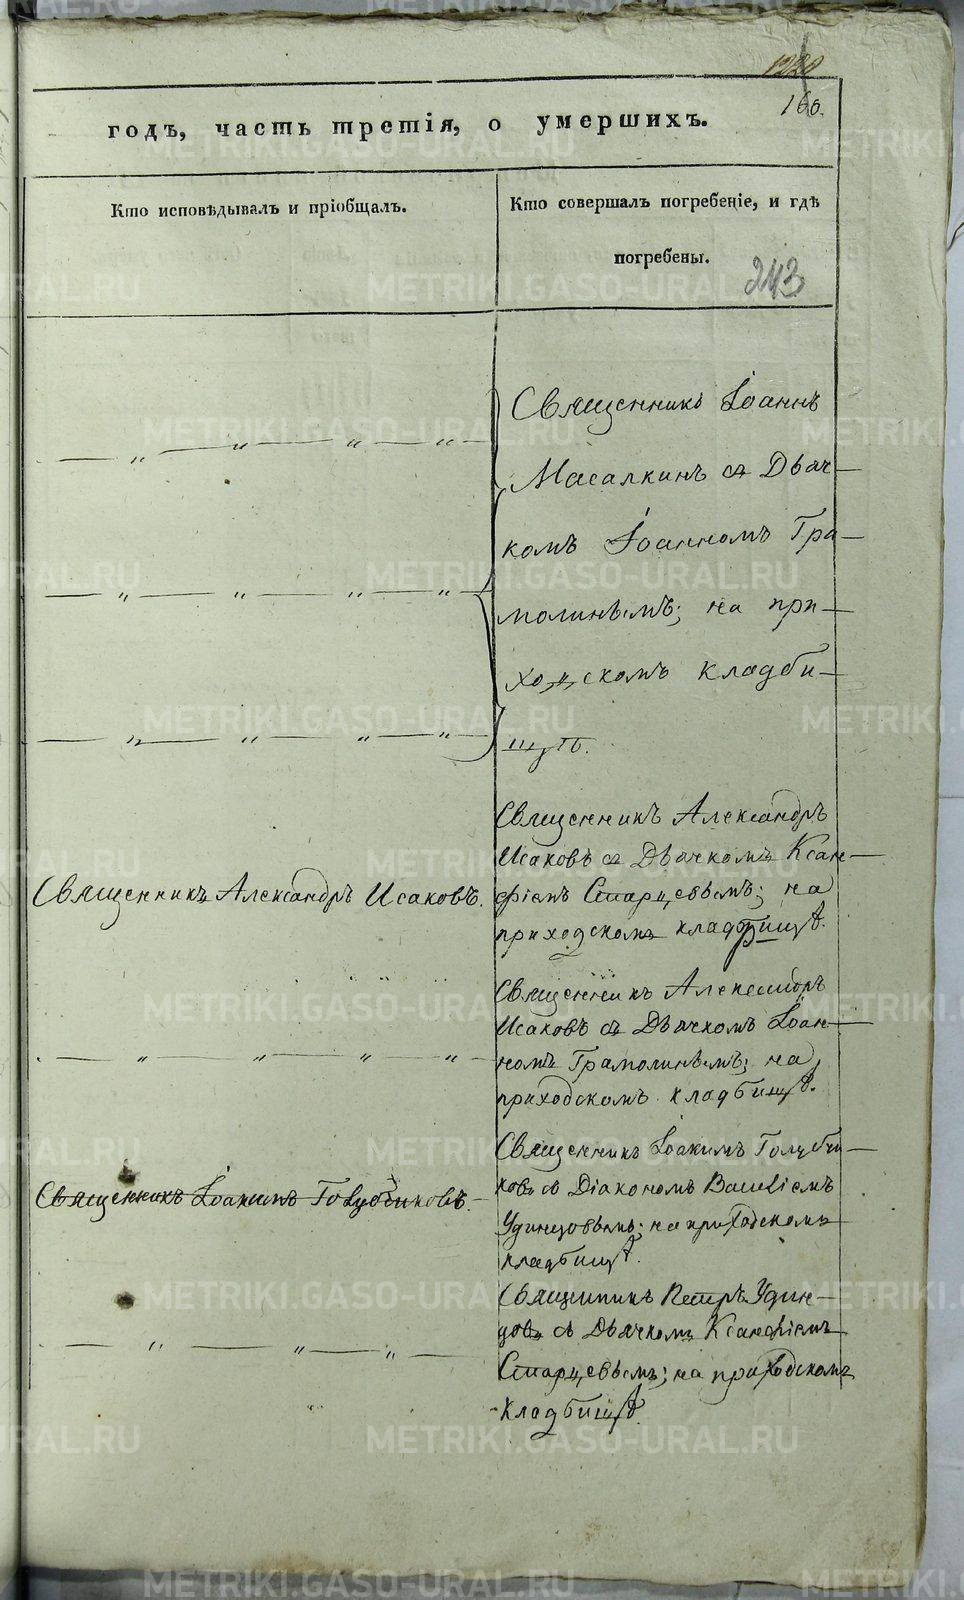 160.
годъ, часть третія, о умершихъ.
Кто исповѣдывалъ и пріобщалъ.
Кто совершалъ погребеніе, и гдѣ
погребены.
243
Священникъ Іоаннъ
Масалкинъ съ Дьяч-
комъ Іоанномъ Гра-
молинымъ; на при-
ходскомъ кладби-
щѣ.
Священникъ Александръ
Исаковъ съ Дьячкомъ Ксан-
Священникъ Александръ Исаковъ.
фіемъ Старцевымъ; на
приходскомъ кладбищѣ.
Священникъ Александръ
Исаковъ съ Дьячкомъ Іоан-
номъ Грамолинымъ; на
приходскомъ кладбищѣ.
Священникъ Іоакимъ Голубчи-
Священникъ Іоакимъ Голубчиковъ.
ковъ съ Діакономъ Василіемъ
Удинцовымъ; на приходскомъ
кладбищѣ.
Священникъ Петръ Удин-
цовъ съ Дьячкомъ Ксанфіемъ
Старцевымъ; на приходскомъ
кладбищѣ.
METRIKI.GASO-URAL.RU